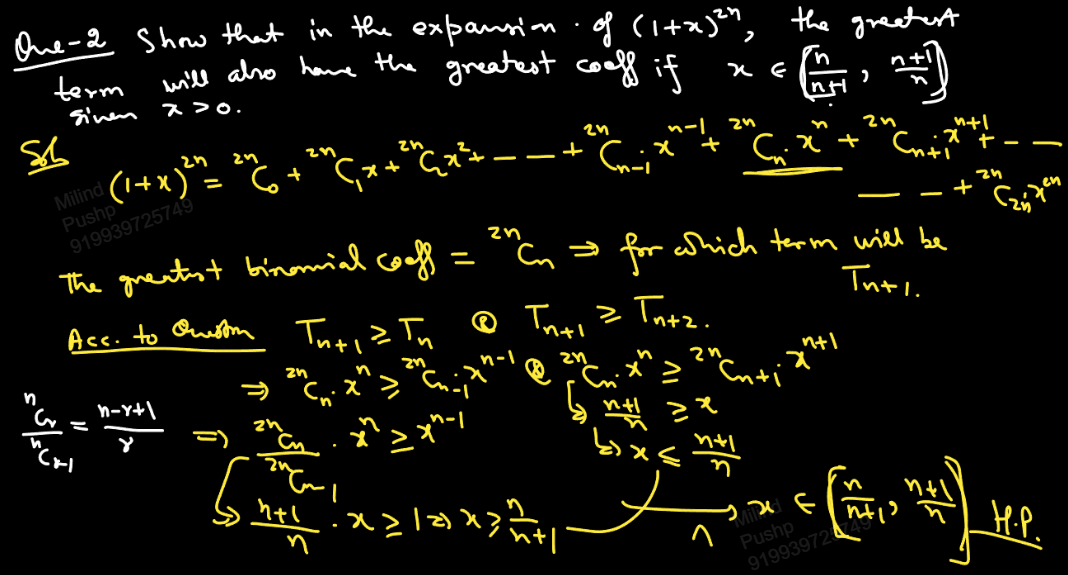 Que-2 Show that in the expansion of (1+x)^{2n}, the greatest
term will also have the greatest coeff if x ∈ [n/(n+1), (n+1)/n]
given x > 0.
Sol
(1+x)^{2n} = ^{2n}C_0 + ^{2n}C_1 x + ^{2n}C_2 x^2 + --- + ^{2n}C_{n-1} x^{n-1} + ^{2n}C_n . x^n + ^{2n}C_{n+1} x^{n+1} + ---
--- + ^{2n}C_{2n} . x^{2n}
Milind
Pushp
919939725749
The greatest binomial coeff = ^{2n}C_n ⇒ for which term will be
T_{n+1}.
Acc. to Question T_{n+1} ≥ T_n & T_{n+1} ≥ T_{n+2}.
⇒ ^{2n}C_n . x^n ≥ ^{2n}C_{n-1} x^{n-1} & ^{2n}C_n . x^n ≥ ^{2n}C_{n+1} . x^{n+1}
^nC_r / ^nC_{r-1} = (n-r+1)/r
⇒ ^{2n}C_n / ^{2n}C_{n-1} . x^n ≥ x^{n-1}
↳ (n+1)/n ≥ x
↳ x ≤ (n+1)/n
↳ (n+1)/n . x ≥ 1 ⇒ x ≥ n/(n+1)
∩ → x ∈ [n/(n+1), (n+1)/n] H.P.
Milind
Pushp
919939725749